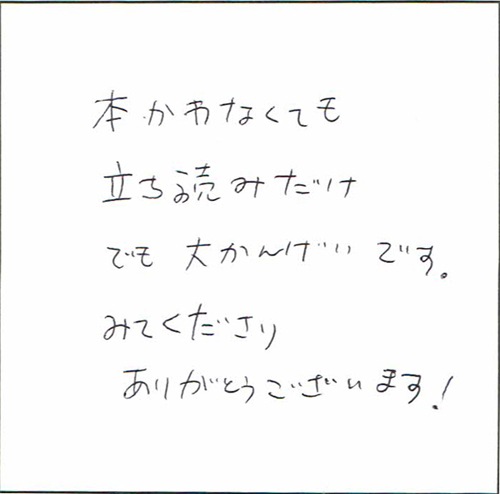 本かわなくても
立ち読みだけ
でも 大かんげいです。
みてくださり
ありがとうございます!